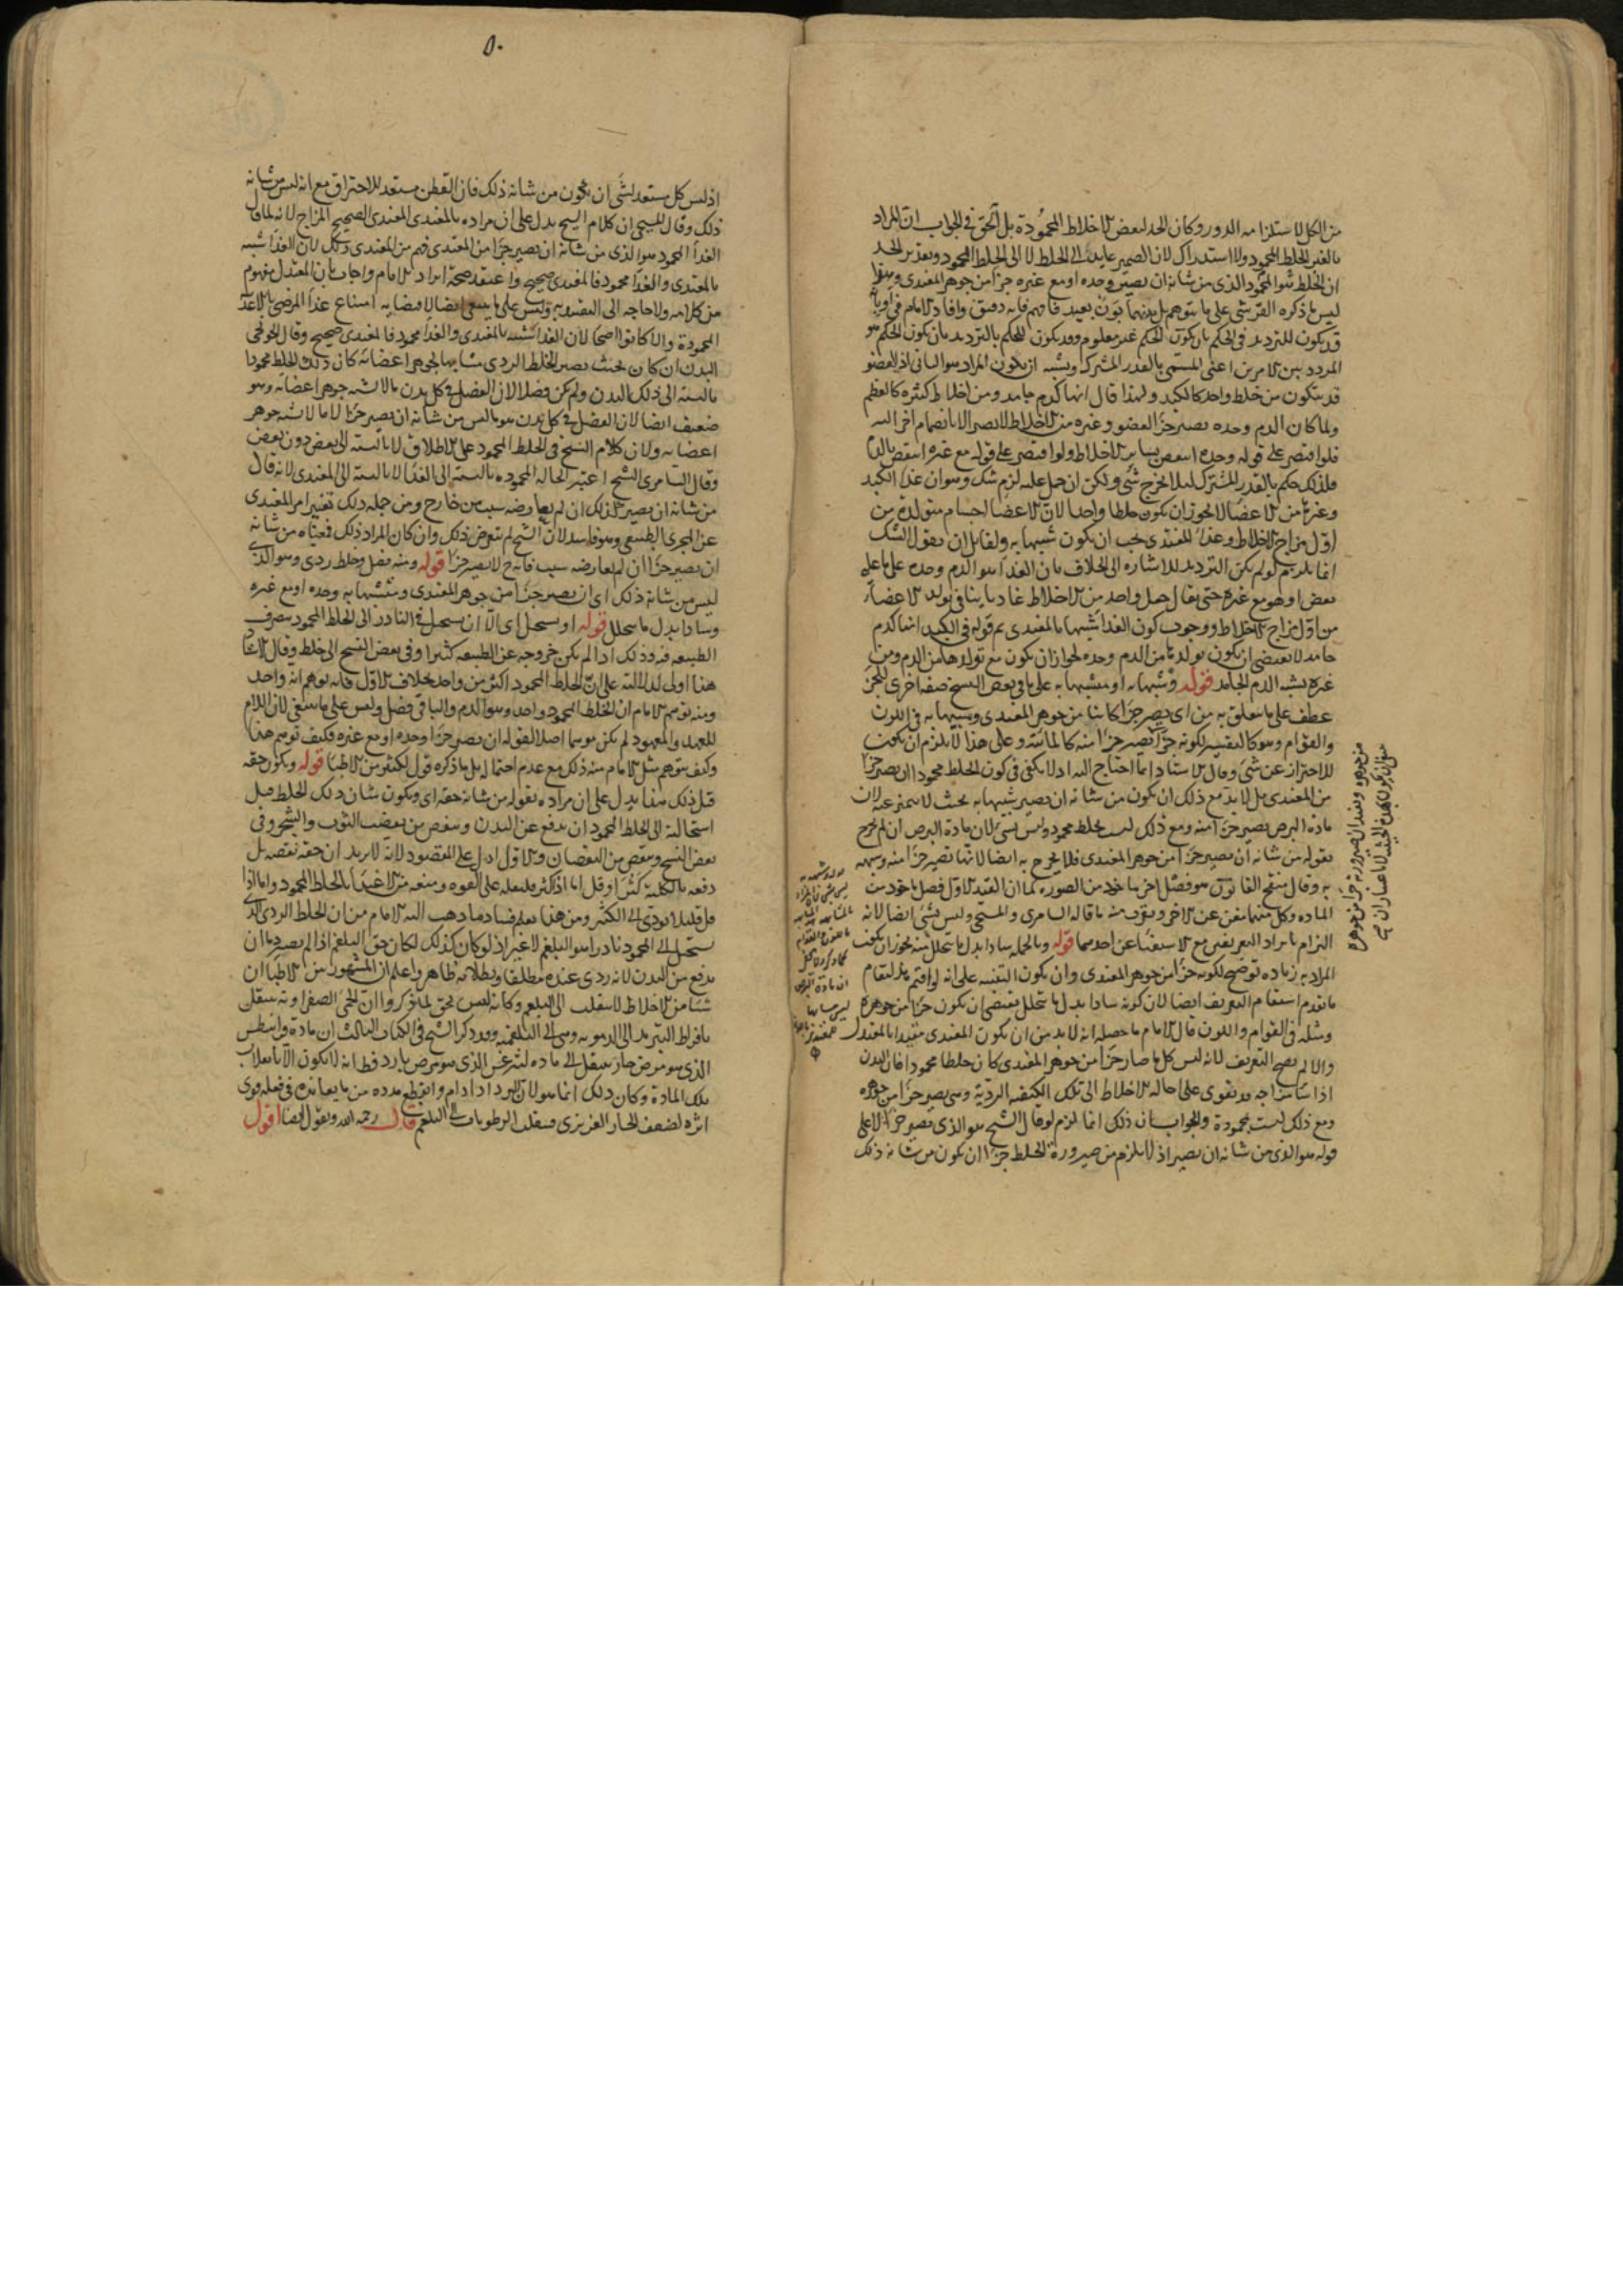 من الكل لاستلزامه الدور وكان الحد لبعض الاخلاط المحمودة بل الحق في الجواب ان المراد
الخلط المحمود ولا استدراك لان الضمير عايد الى الخلط لا الى الخلط المحمود وتقدير الحد
ان الخلط المحمود الذي من شانه ان يصير وحده او مع غيره جزا من جوهر المغتدى
ليس ما ذكره القرشي على ما يتوهم بل بينهما بون بعيد فافهم فانه دقيق وافاد الامام في
قد يكون للترديد في الحكم بان يكون الحكم غير معلوم وقد يكون للحكم بالترديد بان يكون الحكم هو
المردد بين الامرين اعنى المسمى بالقدر المشترك ويشبه ان يكون المراد هو الثاني اذ العضو
قد يتكون من خلط واحد كالكبد ولهذا قال انها كدم جامد ومن اخلاط كثيرة كالعظم
ولما كان الدم وحده يصير جزا لعضو وغيره من الاخلاط لا يصير الا بانضمام اخر اليه
فلو اقتصر على قوله وحده انتقض بساير الاخلاط ولو اقتصر على قوله مع غيره انتقض بالدم
فلذلك حكم بالقدر المشترك ليلا يخرج شي ولكن ان حمل عليه لزم شك وهو ان غذا الكبد
وغيرها من الاعضا لا يجوز ان يكون خلطا واحدا لان الاعضا اجسام متولدة من
اول مزاج الاخلاط وغذا المغتدى يجب ان يكون شبيها به ولقايل ان يقول الشك
انما يلزم لو لم يكن الترديد للاشارة الى الخلاف بان الغذا هو الدم وحده على ما عليه
بعض او هو مع غيره حتى يقال جعل واحد من الاخلاط غاديا ينافي تولد الاعضا
من اول مزاج الاخلاط ووجوب كون الغذا شبيها بالمغتدى ثم قوله في الكبد انها كدم
جامد لا يقتضى ان يكون تولدها من الدم وحده لجواز ان يكون مع تولدها من الدم ومن
غيره يشبه الدم الجامد قوله وشبيها به او متشبها به على ما في بعض النسخ صفة اخرى للجز
عطف على ما يتعلق به من اى يصير جزا كاينا من جوهر المغتدى وشبيها به في اللون
والقوام وهو كالتفسير لكونه جزا يصير جزا منه كالمائية وعلى هذا لا يلزم ان يكون
للاحتراز عن شي وقال الاستاد انما احتاج اليه اذ لا يكفى في كون الخلط محمودا ان يصير جزا
من المغتدى بل لابد مع ذلك ان يكون من شانه ان يصير شبيها به بحيث لا يتميز عنه لان
مادة البرص يصير جزا منه ومع ذلك ليست بخلط محمود وليس بشي لان مادة البرص ان لم يخرج
بقوله من شانه ان يصير جزا من جوهر المغتدى فلا يخرج به ايضا لانها تصير جزا منه وشبيهه
به وقال منقح القانون هو فصل اخر ماخوذ من الصورة كما ان القيد الاول فصل ماخوذ من
المادة وكل منهما مغن عن الاخر وتقرب منه ما قاله السامرى والمسيحى وليس بشي ايضا لانه
التزام بايراد التعريفين مع الاستغنا عن احدهما قوله وبالجملة سادا بدل ما يتحلل منه يجوز ان يكون
المراد به زيادة توضيح لكونه جزا من جوهر المغتدى وان يكون التنبيه على انه لو اقيم هذا مقام
ما تقدم استقام التعريف ايضا لان كونه سادا بدل ما يتحلل يقتضى ان يكون جزا من جوهره
ومثله في القوام واللون قال الامام ما حصله انه لابد من ان يكون المغتدى مقيدا بالمعتدل
والا لم يصح التعريف لانه ليس كل ما صار جزا من جوهر المغتدى كان خلطا محمودا فان البدن
اذا ساء مزاجه قد يقوى على احالة الاخلاط الى تلك الكيفية الردية وهى يصير جزا من جوهره
ومع ذلك ليست بمحمودة والجواب ان ذلك انما لزم لو قال الشيخ هو الذي يصير جزا لا على
قوله هو الذي من شانه ان يصير اذ لا يلزم من صيرورة الخلط جزا ان يكون من شانه ذلك
٥٠
اذ ليس كل مستعد لشى ان يكون من شانه ذلك فان القطن مستعد للاحتراق مع انه ليس من شانه
ذلك وقال المسيحى ان كلام الشيخ يدل على ان مراده بالمغتدى المغتدى الصحيح المزاج لانه لما قال
الغذا المحمود هو الذي من شانه ان يصير جزا من المغتدى فهم من المغتدى ذلك لان الغذا شبيه
بالمغتدى والغذا محمود فالمغتدى صحيح واعتقد صحة ايراد الامام واجاب بان المعتدل مفهوم
من كلامه ولا حاجه الى التقييد به وليس على ما ينبغى ايضا
المحمودة والا كانوا اصحا لان الغذا شبيه بالمغتدى والغذا محمود فالمغتدى صحيح وقال الخونجى
البدن ان كان بحيث يصير الخلط الردى مشابها لجوهر اعضائه كان ذلك الخلط محمودا
بالنسبة الى ذلك البدن ولم يكن فضلا لان الفضل في كل بدن ما لا يشبه جوهر اعضائه وهو
ضعيف ايضا لان الفضل في كل بدن هو ما ليس من شانه ان يصير جزا لا ما لا يشبه جوهر
اعضايه ولان كلام الشيخ في الخلط المحمود على الاطلاق لا بالنسبة الى بعض دون بعض
وقال السامرى الشيخ اعتبر الحالة المحمودة بالنسبة الى الغذا لا بالنسبة الى المغتدى لانه قال
من شانه ان يصير كذلك ان لم يعارضه سبب من خارج ومن جملة ذلك تغير امر المغتدى
عن المجرى الطبيعى وهو فاسد لان الشيخ لم يتعرض ذلك وان كان المراد ذلك فمعناه من شانه
ان يصير جزا ان لم يعارضه سبب فانه ح لا يصير جزا قوله ومنه فضل وخلط ردى وهو الذى
ليس من شانه ذلك اى ان يصير جزا من جوهر المغتدى ومتشبها به وحده او مع غيره
وسادا بدل ما يتحلل قوله او يستحيل اى الا ان يستحيل في النادر الى الخلط المحمود
الطبيعة فيه وذلك اذا لم يكن خروجه عن الطبيعة كثيرا وفي بعض النسخ الى خلط وقال
هذا اولى لدلالته على ان الخلط المحمود اكثر من واحد بخلاف الاول فانه يوهم انه واحد
ومنه توهم الامام ان الخلط المحمود واحد وهو الدم والباقى فضل وليس على ما ينبغى لان اللام
للعهد والمعهود لم يكن موهما اصلا لقوله ان يصير جزا وحده او مع غيره فكيف توهم هذا
وكيف يتوهم مثل الامام منه ذلك مع عدم احتماله بل ما ذكره قول لكثير من الاطبا قوله ويكون حقه
قبل ذلك هذا يدل على ان مراده بقوله من شانه حقه اى ويكون شان ذلك الخلط قبل
استحالته الى الخلط المحمود ان يدفع عن البدن وينفض من نفضت الثوب والشجر وفي
بعض النسخ وينقص من النقصان والاول ادل على المقصود لانه لا يريد ان حقه نقصه بل
دفعه بالكلية
فلو قليلا يودى الى الكثير ومن هذا يعلم فساد ما ذهب اليه الامام من ان الخلط الردى الذى
يستحيل الى المحمود نادرا هو البلغم لا غير اذ لو كان كذلك لكان حق البلغم اذا لم يصر دما ان
يدفع من البدن لانه ردى عنده مطلقا وبطلانه ظاهر واعلم ان المشهور من الاطبا ان
شيا من الاخلاط لا ينقلب الى البلغم وكانه ليس بحق لما ذكروا ان الحمى الصفراوية تنتقل
بافراط التبريد الى الدموية وهى الى البلغمية وقد ذكر الشيخ في الكتاب الثالث ان مادة قرانيطس
الذى هو مرض حار ينتقل الى مادة ليثرغس الذى هو مرض بارد قط انه لا يكون الا بانقلاب
تلك المادة وكان ذلك انما هو لان البرد اذا دام وانقطع مدده من ما يعانده في فعله قوى
اثره لضعف الحار الغريزى فينقلب الرطوبات الى البلغم قال رحمه الله ونقول ايضا اقول